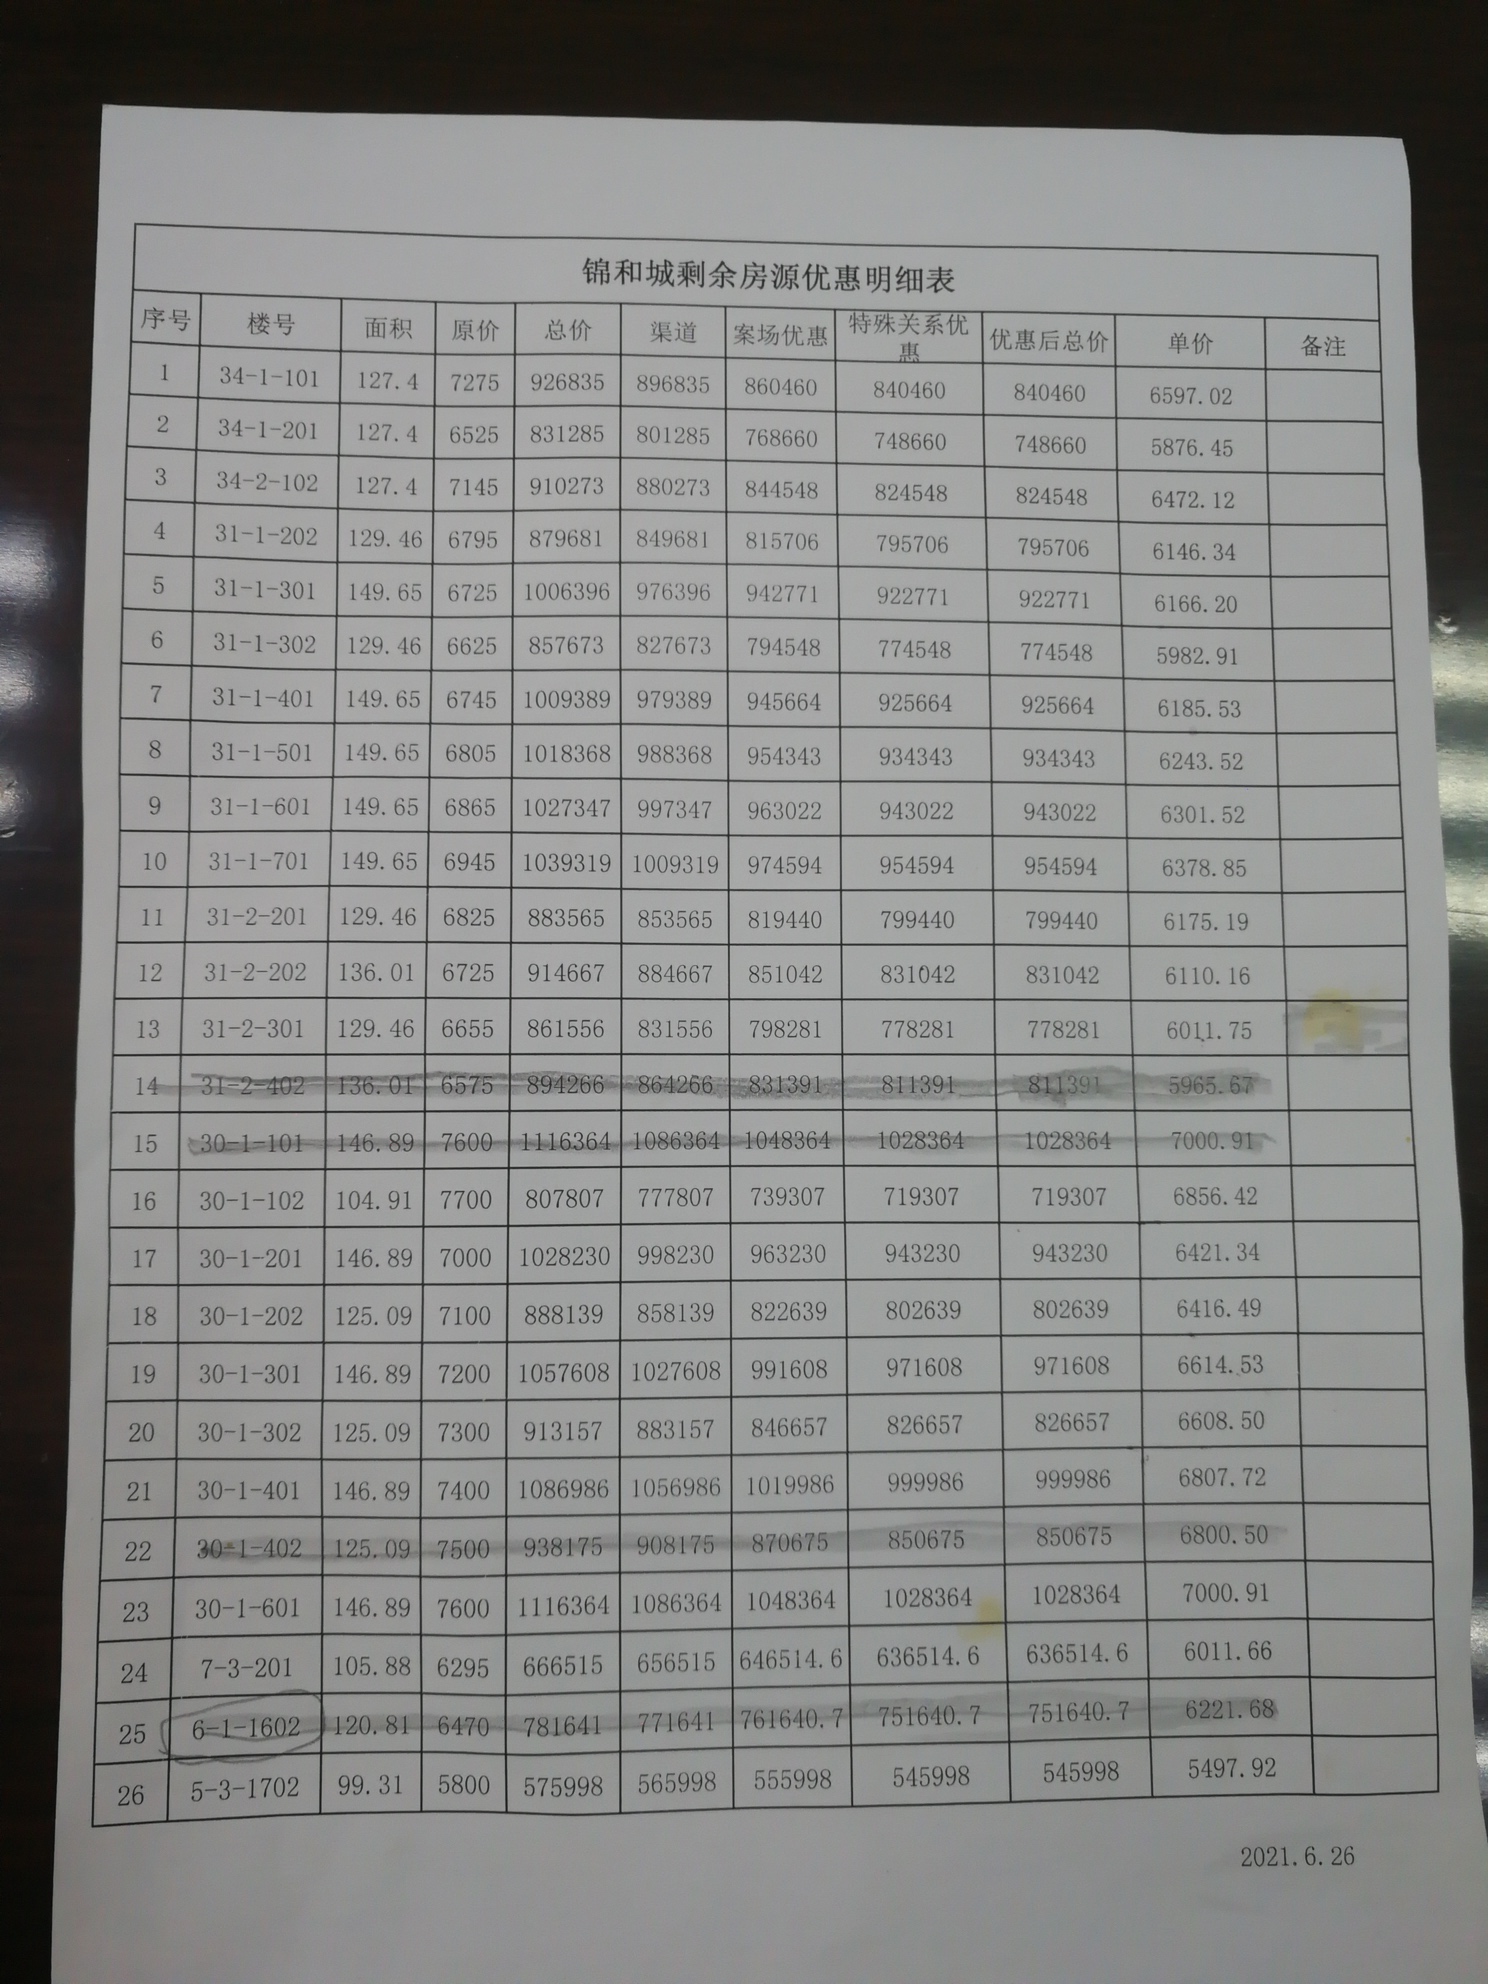 锦和城剩余房源优惠明细表
序号 楼号 面积 原价 总价 渠道 案场优惠 特殊关系优惠 优惠后总价 单价 备注
1 34-1-101 127.4 7275 926835 896835 860460 840460 840460 6597.02
2 34-1-201 127.4 6525 831285 801285 768660 748660 748660 5876.45
3 34-2-102 127.4 7145 910273 880273 844548 824548 824548 6472.12
4 31-1-202 129.46 6795 879681 849681 815706 795706 795706 6146.34
5 31-1-301 149.65 6725 1006396 976396 942771 922771 922771 6166.20
6 31-1-302 129.46 6625 857673 827673 794548 774548 774548 5982.91
7 31-1-401 149.65 6745 1009389 979389 945664 925664 925664 6185.53
8 31-1-501 149.65 6805 1018368 988368 954343 934343 934343 6243.52
9 31-1-601 149.65 6865 1027347 997347 963022 943022 943022 6301.52
10 31-1-701 149.65 6945 1039319 1009319 974594 954594 954594 6378.85
11 31-2-201 129.46 6825 883565 853565 819440 799440 799440 6175.19
12 31-2-202 136.01 6725 914667 884667 851042 831042 831042 6110.16
13 31-2-301 129.46 6655 861556 831556 798281 778281 778281 6011.75
14 31-2-402 136.01 6575 894266 864266 831391 811391 811391 5965.67
15 30-1-101 146.89 7600 1116364 1086364 1048364 1028364 1028364 7000.91
16 30-1-102 104.91 7700 807807 777807 739307 719307 719307 6856.42
17 30-1-201 146.89 7000 1028230 998230 963230 943230 943230 6421.34
18 30-1-202 125.09 7100 888139 858139 822639 802639 802639 6416.49
19 30-1-301 146.89 7200 1057608 1027608 991608 971608 971608 6614.53
20 30-1-302 125.09 7300 913157 883157 846657 826657 826657 6608.50
21 30-1-401 146.89 7400 1086986 1056986 1019986 999986 999986 6807.72
22 30-1-402 125.09 7500 938175 908175 870675 850675 850675 6800.50
23 30-1-601 146.89 7600 1116364 1086364 1048364 1028364 1028364 7000.91
24 7-3-201 105.88 6295 666515 656515 646514.6 636514.6 636514.6 6011.66
25 6-1-1602 120.81 6470 781641 771641 761640.7 751640.7 751640.7 6221.68
26 5-3-1702 99.31 5800 575998 565998 555998 545998 545998 5497.92
2021.6.26